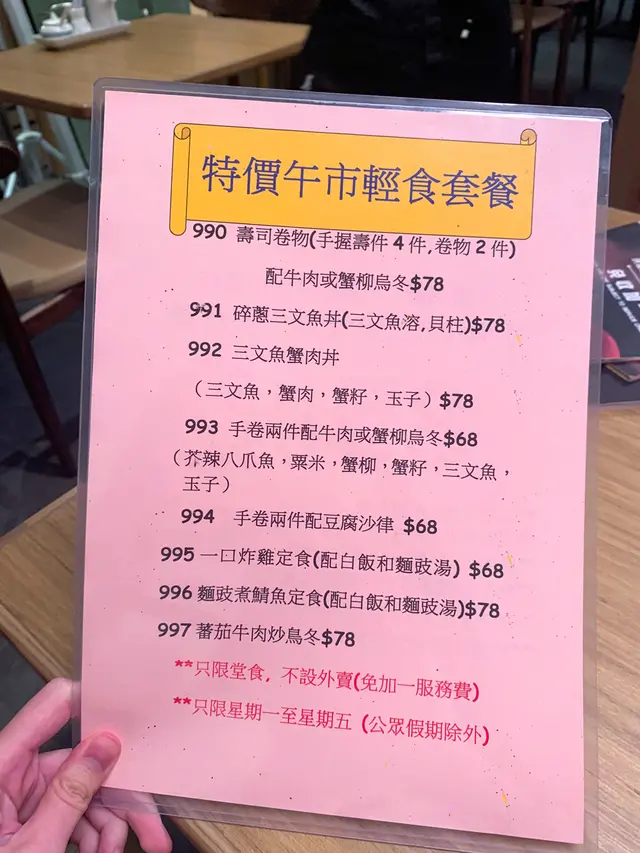 特價午市輕食套餐
990 壽司卷物(手握壽件 4 件,卷物 2 件)
配牛肉或蟹柳烏冬$78
991 碎蔥三文魚丼(三文魚溶,貝柱)$78
992 三文魚蟹肉丼
（三文魚，蟹肉，蟹籽，玉子）$78
993 手卷兩件配牛肉或蟹柳烏冬$68
（芥辣八爪魚，粟米，蟹柳，蟹籽，三文魚，
玉子）
994 手卷兩件配豆腐沙律 $68
995 一口炸雞定食(配白飯和麵豉湯) $68
996 麵豉煮鯖魚定食(配白飯和麵豉湯)$78
997 蕃茄牛肉炒烏冬$78
**只限堂食, 不設外賣(免加一服務費)
**只限星期一至星期五 (公眾假期除外)